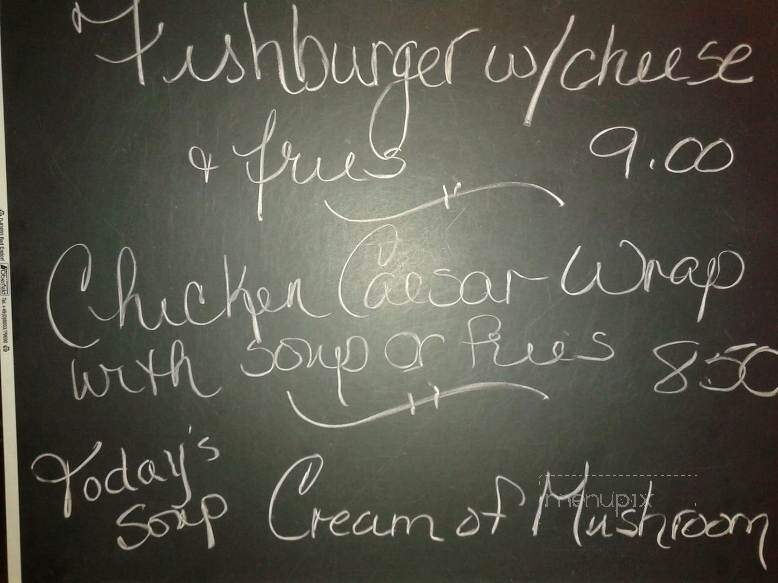 Fishburger w/cheese
& fries 9.00
Chicken Caesar Wrap
with soup or fries 850
Today's
soup Cream of Mushroom
menupix